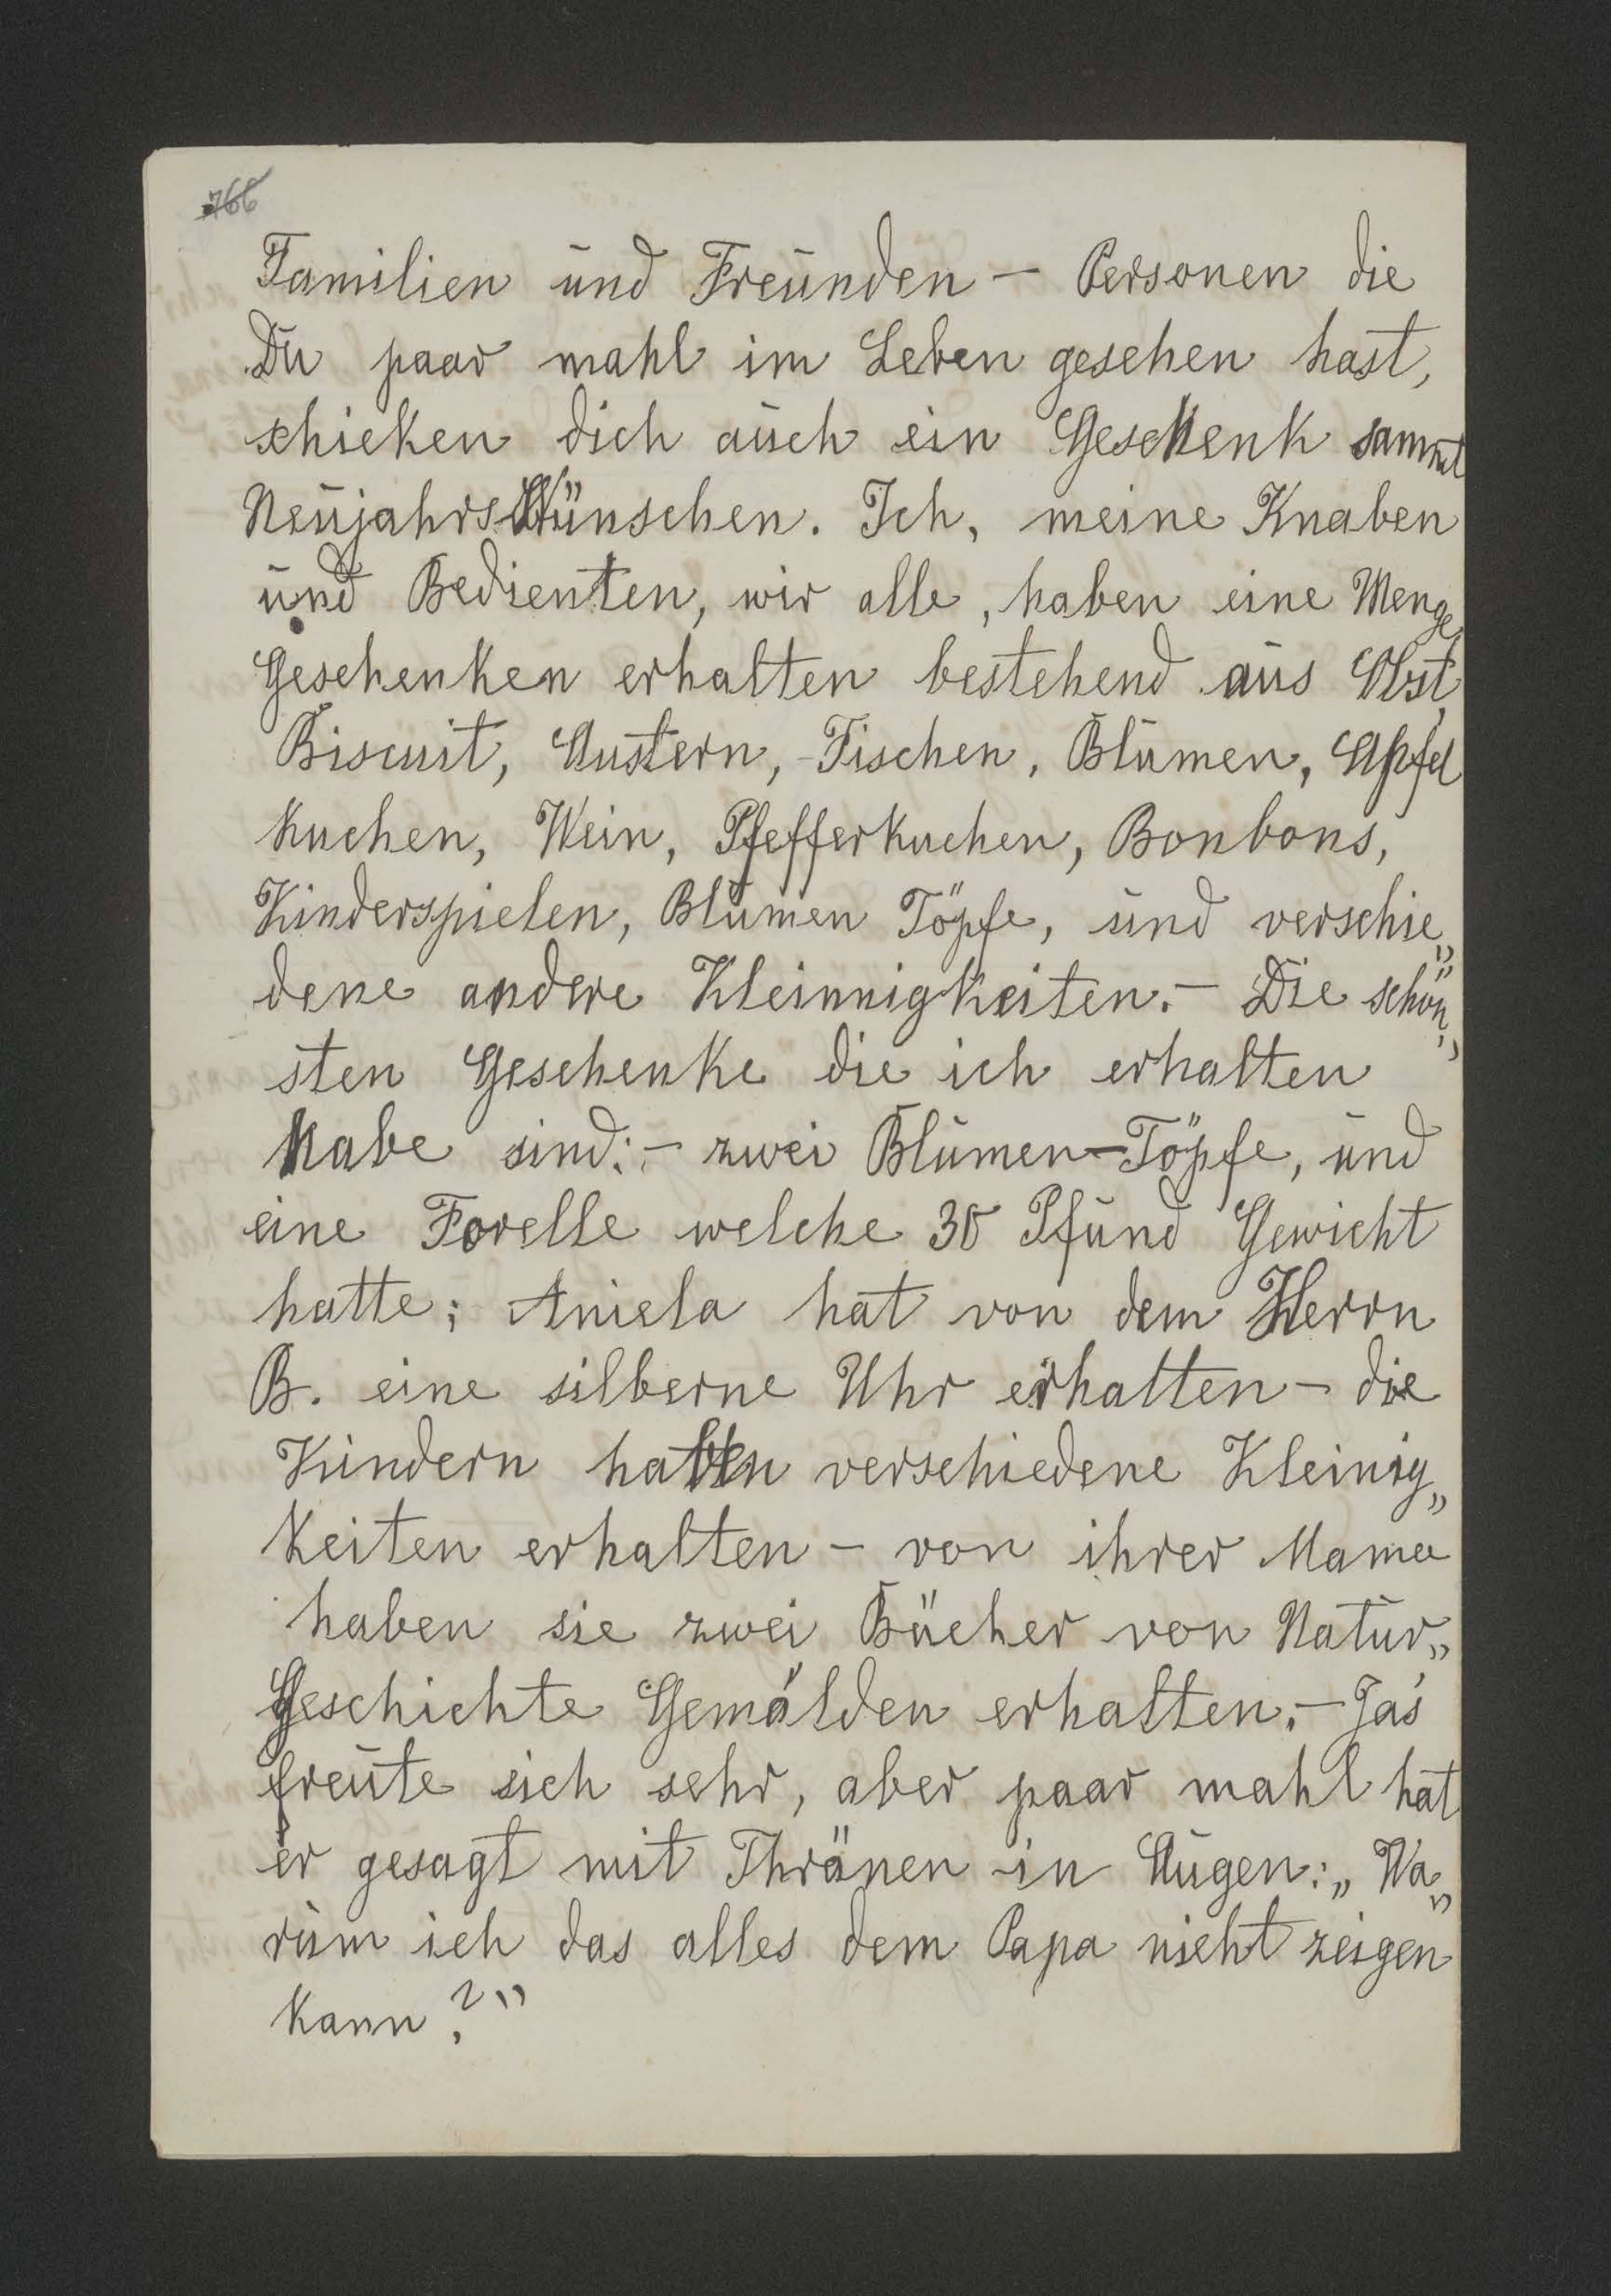 766
Familien und Freunden — Personen die
Du paar mahl im Leben gesehen hast,
schicken dich auch ein Geschenk sammt
Neujahrs Wünschen. Ich, meine Knaben
und Bedienten, wir alle, haben eine Menge
Geschenken erhalten bestehend aus Obst,
Biscuit, Austern, Fischen, Blumen, Apfel
Kuchen, Wein, Pfefferkuchen, Bonbons,
Kinderspielen, Blumen Töpfe, und verschie„
dene andere Kleinnigkeiten.— Die schön„
sten Geschenke die ich erhalten
habe sind:— zwei Blumen-Töpfe, und
eine Forelle welche 30 Pfund Gewicht
hatte; Aniela hat von dem Herrn
B. eine silberne Uhr erhalten — die
Kindern haben verschiedene Kleinig„
keiten erhalten — von ihrer Mama
haben sie zwei Bücher von Natur„
Geschichte Gemälden erhalten.— Jaś
freute sich sehr, aber paar mahl hat
er gesagt mit Thränen in Augen: „Wa„
rum ich das alles dem Papa nicht zeigen
kann?"